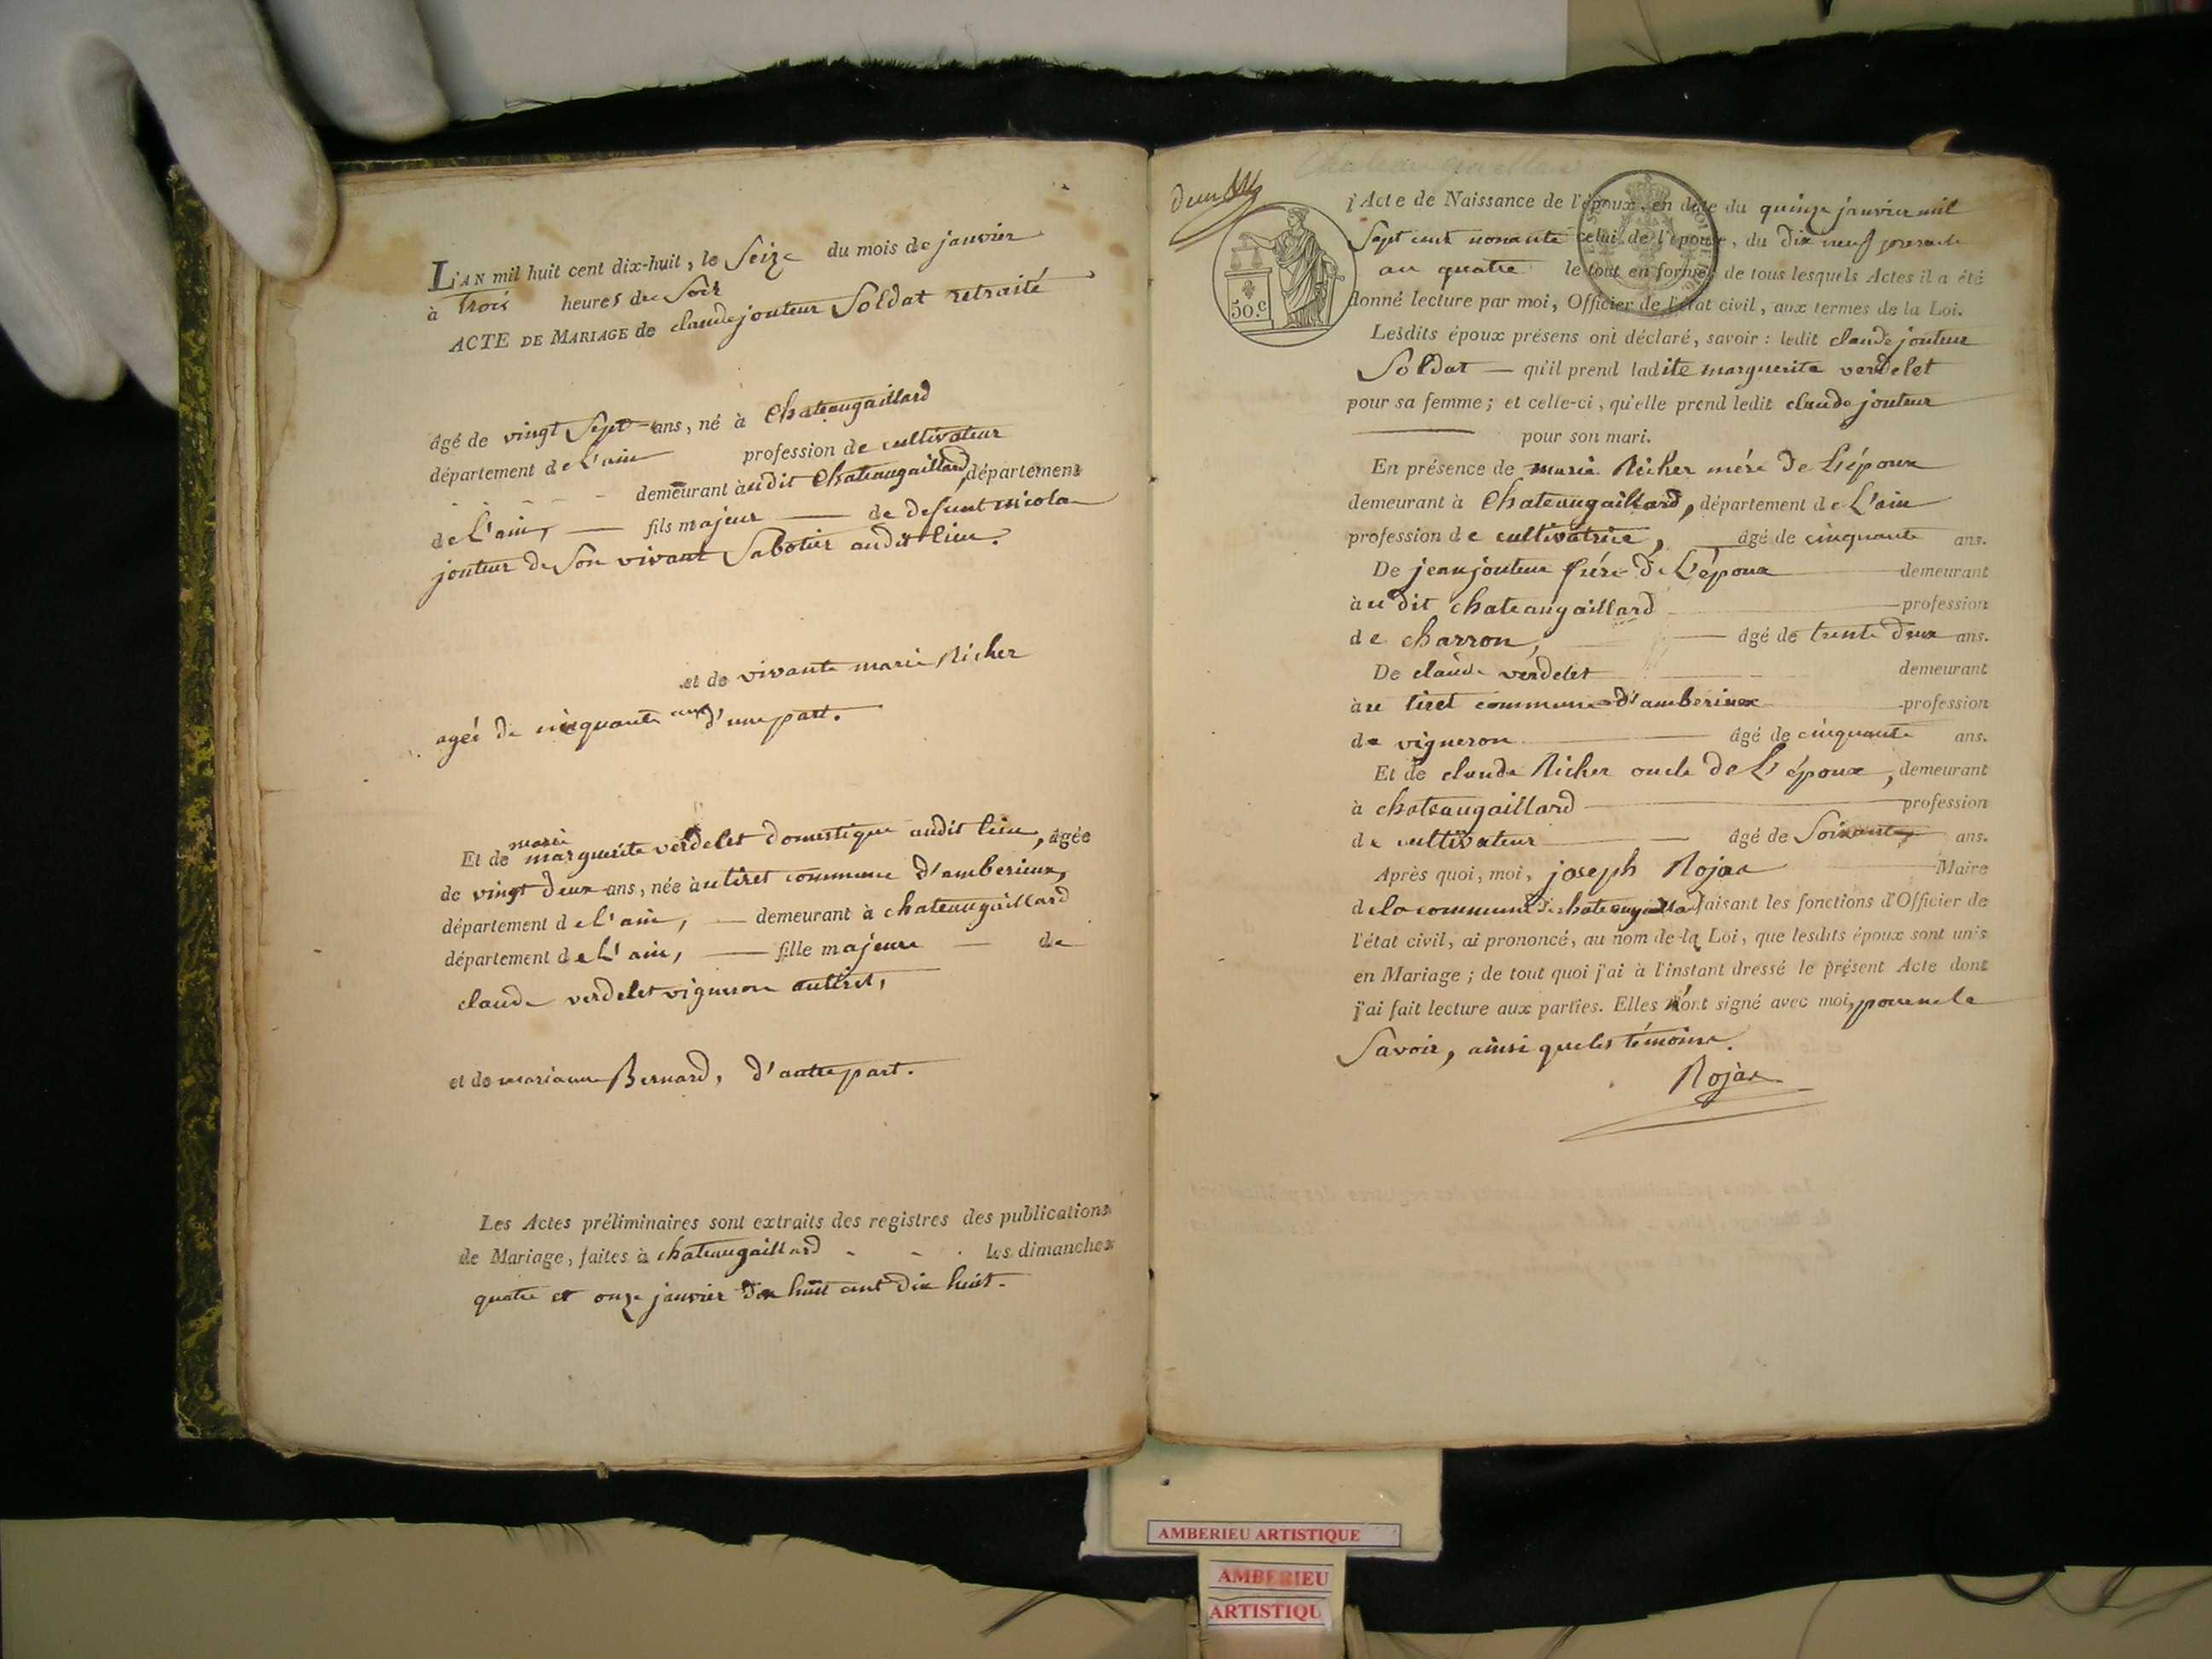 L'AN mil huit cent dix-huit, le Seize du mois de janvier
à trois heures du Soir
ACTE DE MARIAGE de claude jouteur Soldat retraité
âgé de vingt Sept ans, né à Chateaugaillard
département de L'ain profession de cultivateur
demeurant audit Chateaugaillard, département
de L'ain, fils majeur de defunt nicola
jouteur de Son vivant Sabotier audit lieu.
et de vivante marie Richer
ageé de cinquante ans d'une part.
marie
Et de marguerite verdelet domestique audit lieu, âgée
de vingt deux ans, née au tiret commune d'amberieux,
département de l'ain, demeurant à chateaugaillard
département de L'ain, fille majeure de
claude verdelet vigneron autiret,
et de marianne Bernard, d'autre part.
Les Actes préliminaires sont extraits des registres des publications
de Mariage, faites à chateaugaillard les dimanches
quatre et onze janvier dix huit cent dix huit.
50.c
l'Acte de Naissance de l'époux, en date du quinze janvier mil
Sept cent nonante celui de l'épouse, du dix neuf
an quatre le tout en forme; de tous lesquels Actes il a été
donné lecture par moi, Officier de l'état civil, aux termes de la Loi.
Lesdits époux présens ont déclaré, savoir : ledit claude jouteur
Soldat qu'il prend ladite marguerite verdelet
pour sa femme; et celle-ci, qu'elle prend ledit claude jouteur
pour son mari.
En présence de marie Richer mére de L'époux
demeurant à Chateaugaillard, département de L'ain
profession de cultivatrice, âgé de cinquante ans.
De jean jouteur frére de L'époux demeurant
au dit chateaugaillard profession
de charron, âgé de trente deux ans.
De claude verdelet demeurant
au tiret commune d'amberieux profession
de vigneron âgé de cinquante ans.
Et de claude Richer oncle de L'époux, demeurant
à chateaugaillard profession
de cultivateur âgé de Soixante ans.
Après quoi, moi, joseph Rojat Maire
de la commune de chateaugaillard faisant les fonctions d'Officier de
l'état civil, ai prononcé, au nom de la Loi, que lesdits époux sont unis
en Mariage; de tout quoi j'ai à l'instant dressé le présent Acte dont
j'ai fait lecture aux parties. Elles n'ont signé avec moi, pour ne le
Savoir, ainsi que les témoins.
Rojat
AMBERIEU ARTISTIQUE
AMBERIEU
ARTISTIQU